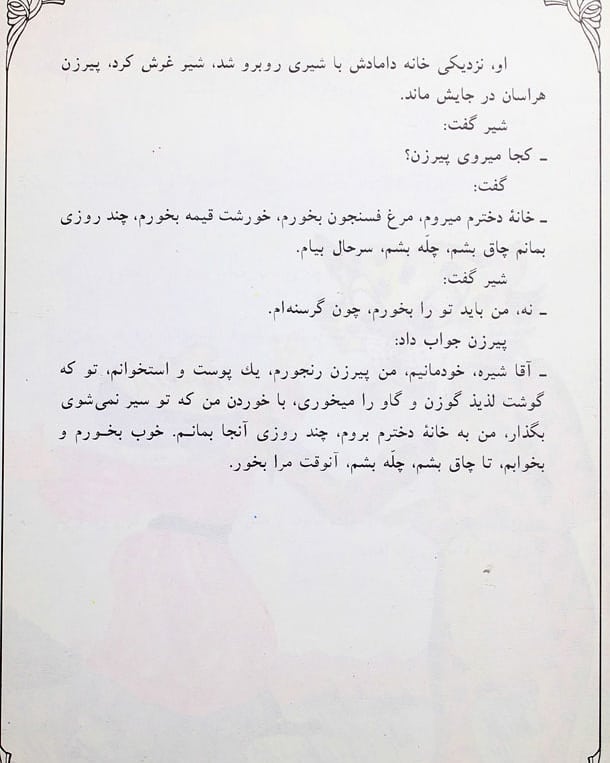 او، نزدیکی خانه دامادش با شیری روبرو شد، شیر غرش کرد، پیرزن
هراسان در جایش ماند.
شیر گفت:
ـ کجا میروی پیرزن؟
گفت:
ـ خانهٔ دخترم میروم، مرغ فسنجون بخورم، خورشت قیمه بخورم، چند روزی
بمانم چاق بشم، چلّه بشم، سرحال بیام.
شیر گفت:
ـ نه، من باید تو را بخورم، چون گرسنه‌ام.
پیرزن جواب داد:
ـ آقا شیره، خودمانیم، من پیرزن رنجورم، یك پوست و استخوانم، تو که
گوشت لذیذ گوزن و گاو را میخوری، با خوردن من که تو سیر نمی‌شوی
بگذار، من به خانهٔ دخترم بروم، چند روزی آنجا بمانـم. خوب بخـورم و
بخوابم، تا چاق بشم، چلّه بشم، آنوقت مرا بخور.